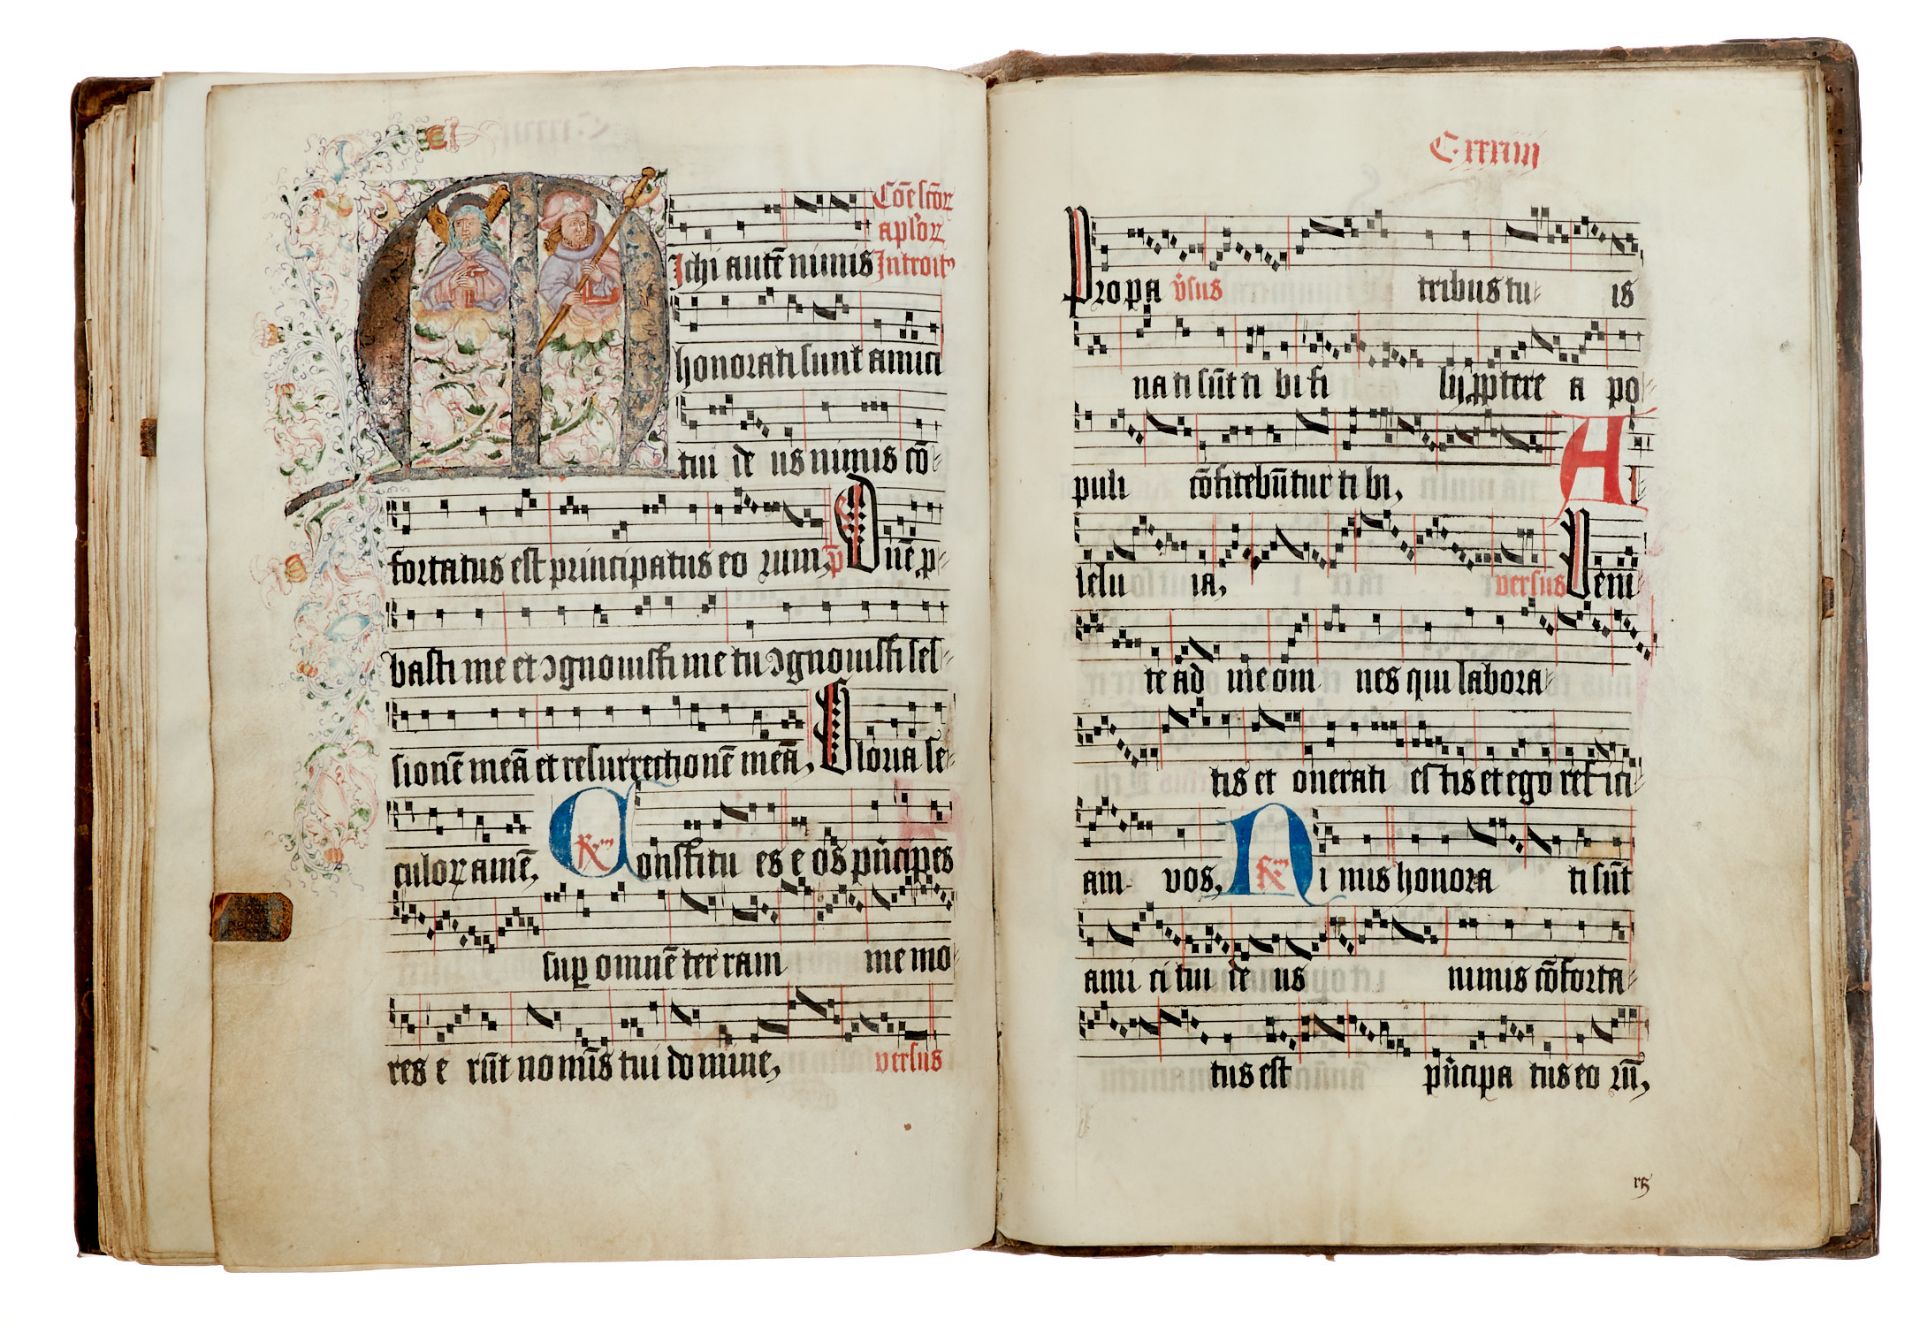 Cōe scōꝝ
aplōꝝ
Michi autē nimis Introit⁹
honorati sunt amici
tui de us nimis cō⸗
fortatus est principatus eo rum, p̄ Dn̄e p⸗
basti me et ꝯgnouisti me tu ꝯgnouisti ses⸗
sionē meā et resurrectionē meā, Gloria se⸗
culoꝝ amē, Constitu es e os pn̄cipes
sup omnē ter ram me mo
res e rūt no mīs tui do mine, versus
C·xxxiiii
Pro pa v̄sus tribus tu⸗ is
na ti sūt ti bi fi lij ꝓptere a po⸗
puli cōfitebūtur ti bi, Al⸗
lelu ia, versus Ueni⸗
te ad me om nes qui labora⸗
tis et onerati es tis et ego refici⸗
am vos, Ni mis honora ti sūt
ami ci tui de us nimis cōforta⸗
tus est pn̄cipa tus eo rū,